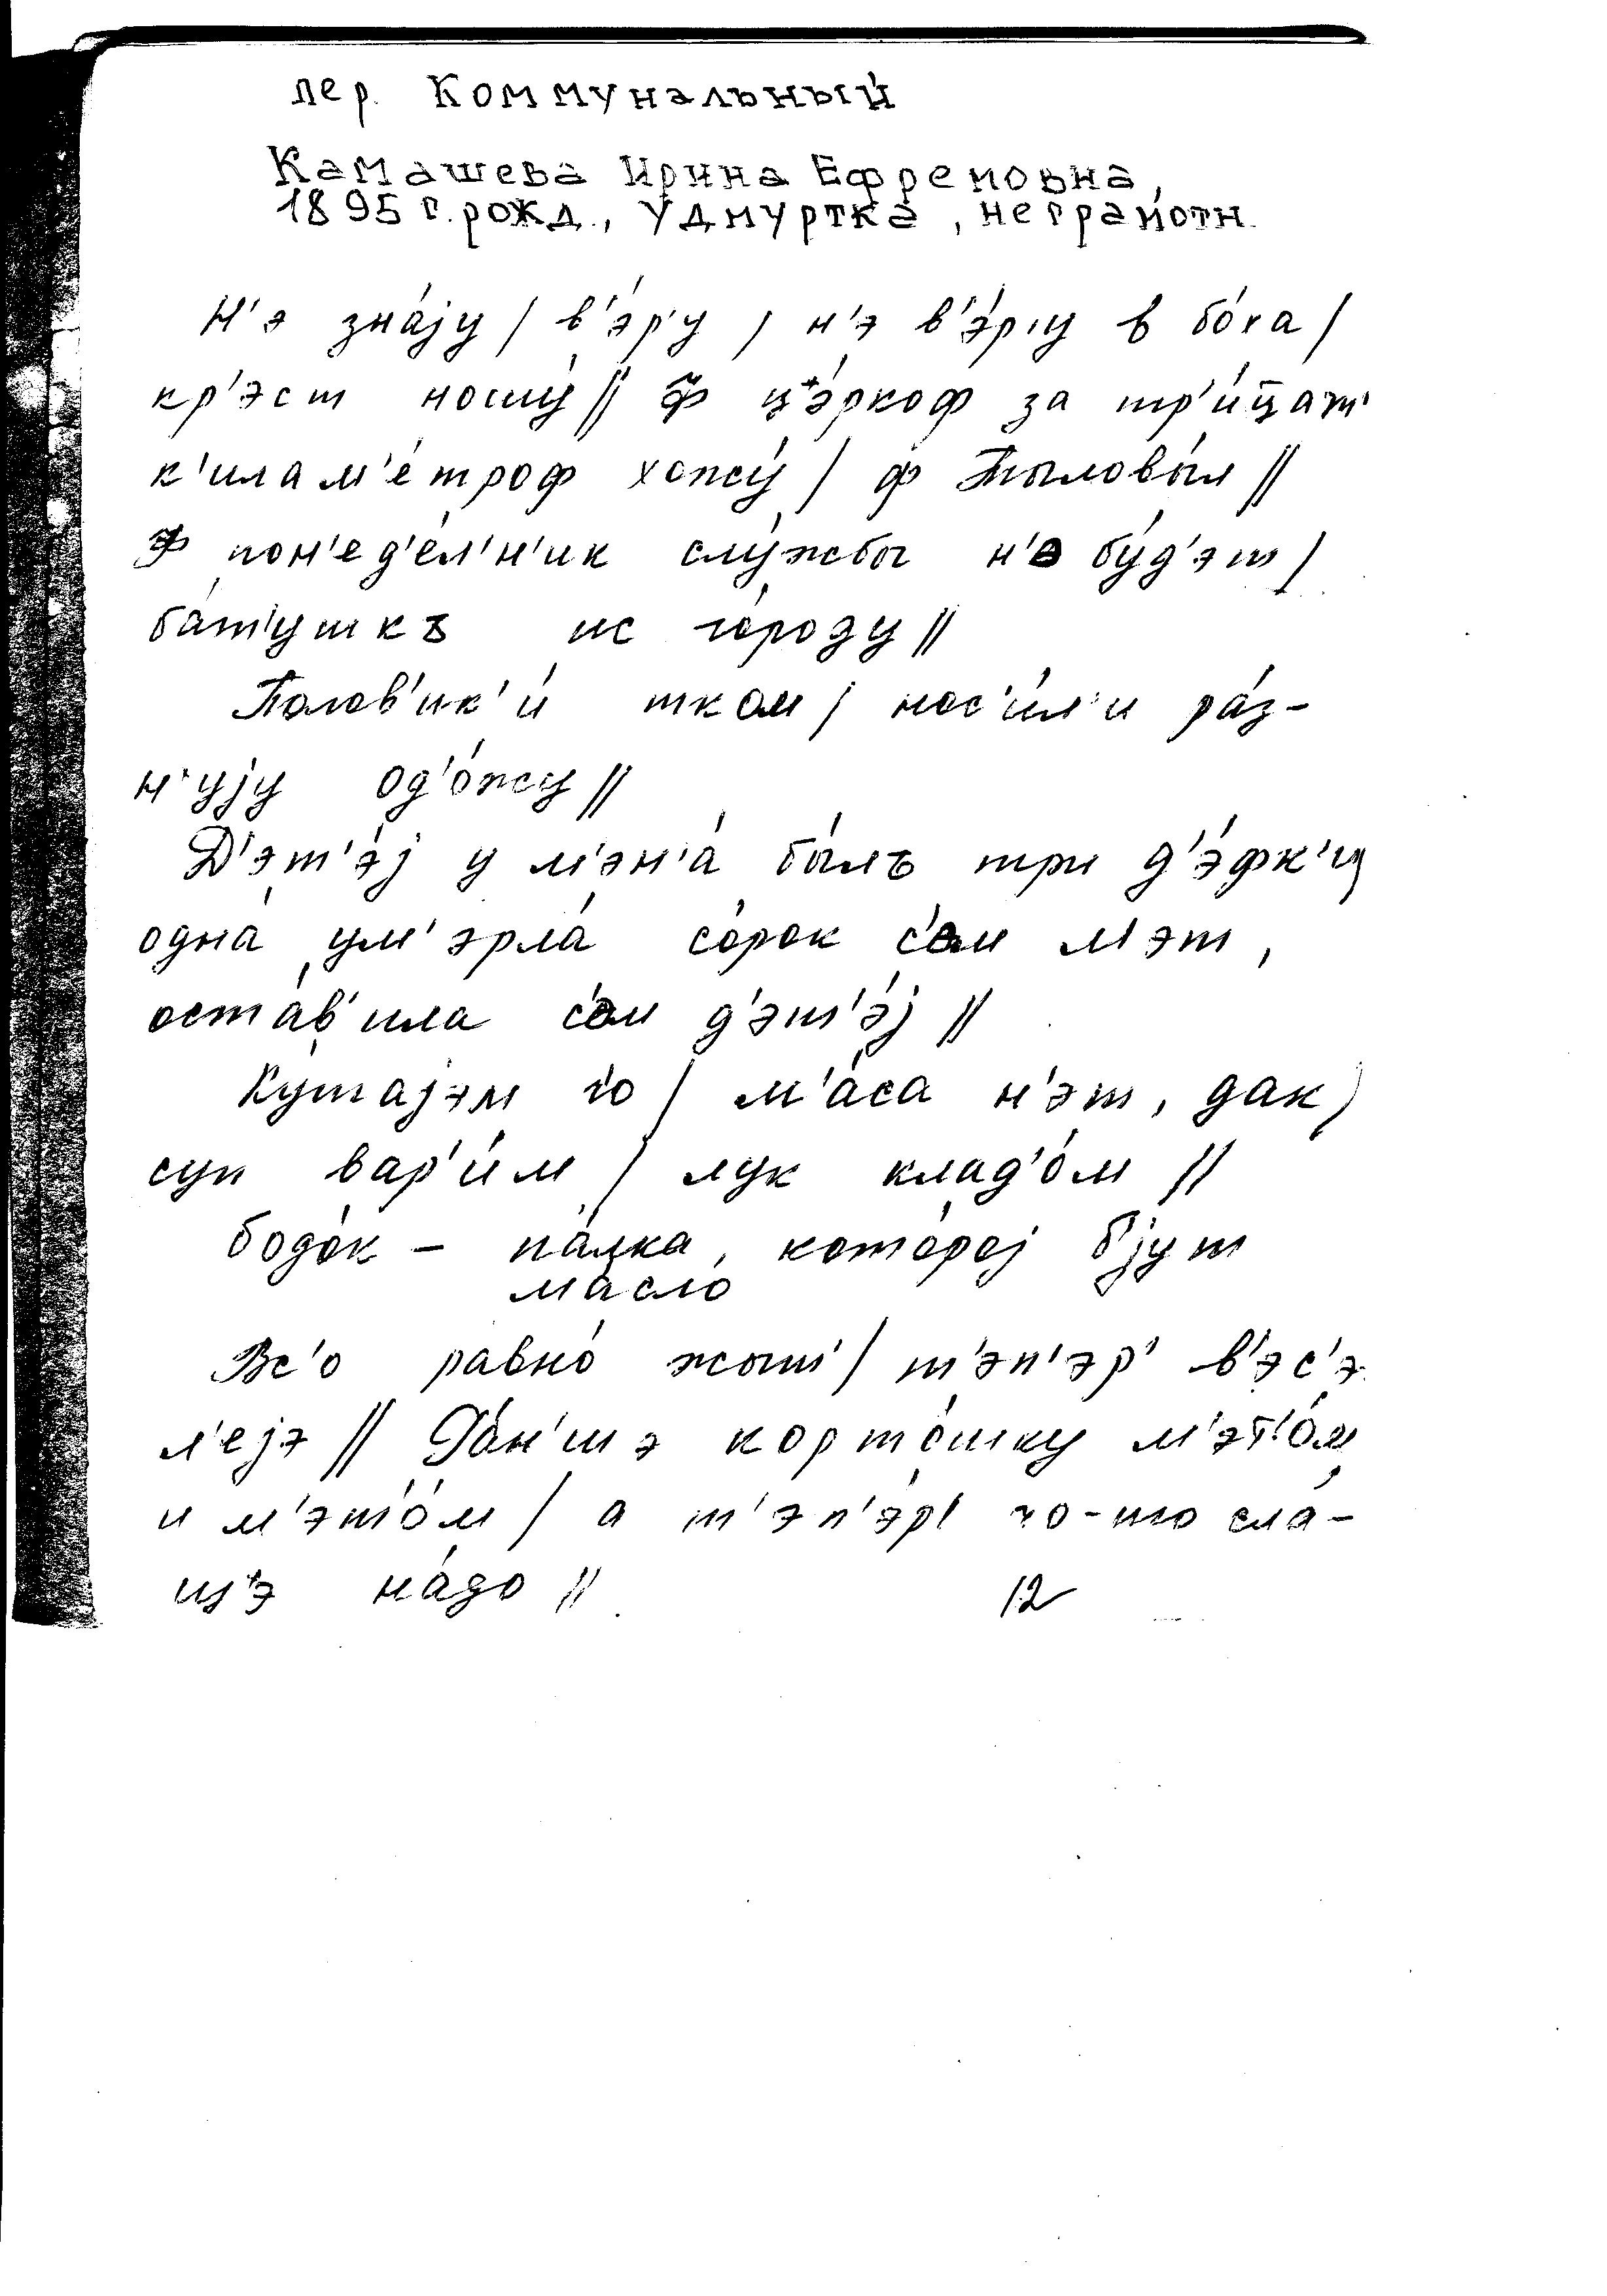 пер. Коммунальный
Камашева Ирина Ефремовна,
1895 г. рожд., удмуртка, неграмотн.
Н'э зна́jу / в'э́р'у / н'э в'э́р'у в бо́ха /
кр'эст ношу́ // Ф ц'э́ркоф за тр'и́ц̄ат'
к'илам'е́троф хожу́ / ф Тыловы́л //
Ф пон'ед'е́л'н'ик слу́жбы н'э бу́д'эт /
ба́т'ушкъ ис го́роду //
Полов'ик'и́ ткал'и / нос'и́л'и ра́з-
н'уjу од'о́жу //
Д'эт'э́j у м'эн'а́ бы́лъ три д'э́фк'и
одна́ ум'эрла́ со́рок с'ем л'эт,
оста́в'ила с'ем д'эт'э́j //
Ку́шаjэм чо / м'а́са н'эт, дак /
суп вар'и́м / лук клад'о́м //
бодо́к – па́лка, кото́роj б'jут
ма́сло
Вс'о равно́ жыт' / т'эп'эр' в'эс'э
л'еjэ // Ра́н'шэ корто́шку м'эт'о́м
и м'эт'о́м / а т'эп'э́р' чо-то сла́-
щ'э на́до //
12